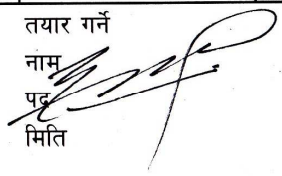 तयार गर्ने
नाम
पद
मिति